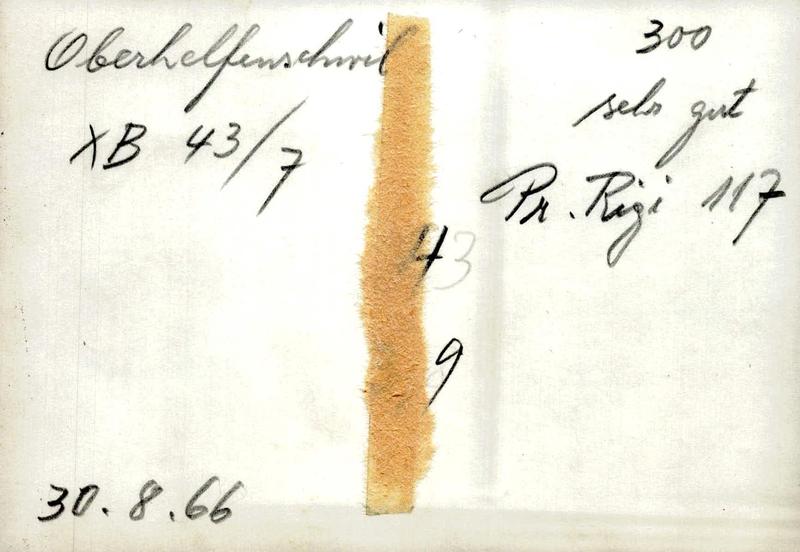 Oberhelfenschwil
XB 43/7
300
sehr gut
Pr. Rigi 117
43
9
30.8.66